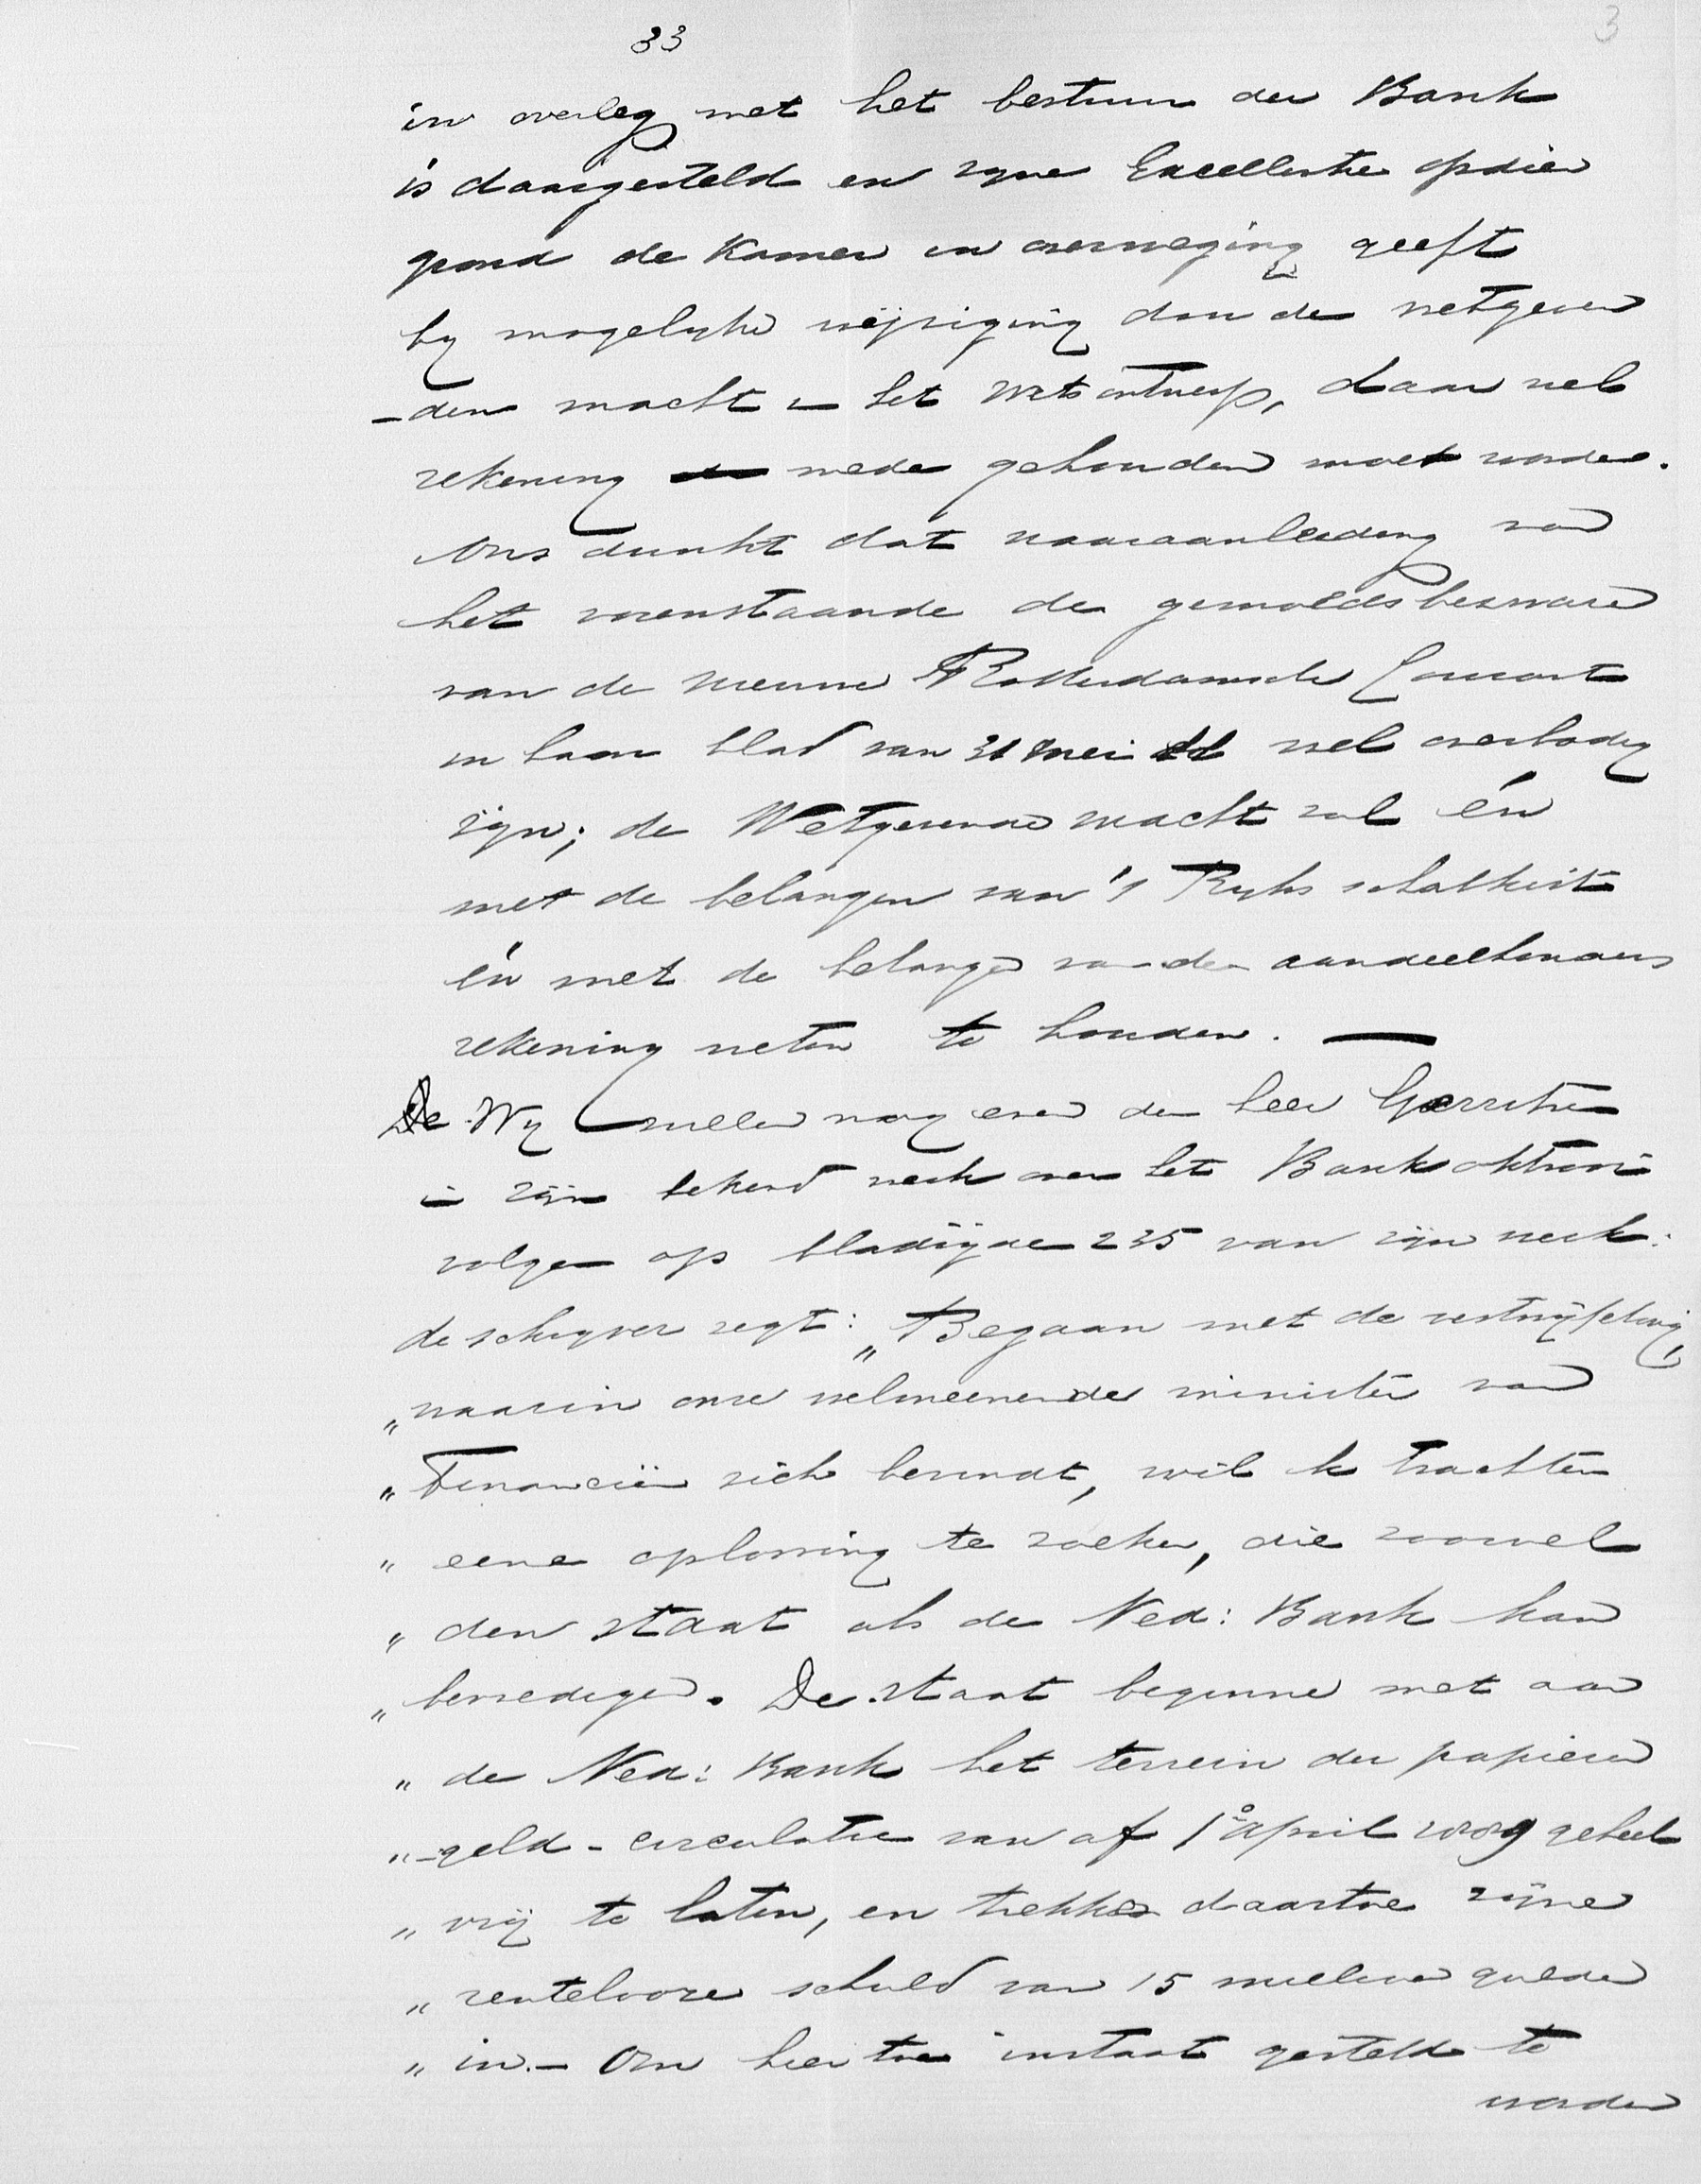 33
3
in overleg met het bestuur der Bank
is daargesteld en zyne Excellentie op dien
grond de Kamer in overweging geeft
by mogelyke wijziging door de wetgeven
-den macht in het wetsontwerp, daar wel
rekening mede gehouden moet worden.
Ons dunkt dat naaraanleiding van
het vorenstaande de gemoedsbezwaren
van de nieuwe Rotterdamsche Courant
in haar blad van 31 Mei ll wel overbodig
zijn; de Wetgevende macht zal én
met de belangen van 's Ryks schatkist
én met de belangen van den aandeelhouders
rekening weten te houden. —
Wy zullen nog even den heer Gerritsen
in zijn bekend werk over het Bankoktrooi
volgen op bladzijde 235 van zijn werk:
de schryver zegt: „Begaan met de vertwijfeling,
„waarin onze welmeenende minister van
„Financiën zich bevindt, wil ik trachten
„eene oplossing te zoeken, die zoowel
„den staat als de Ned: Bank kan
„bevredigen. De staat beginne met aan
„de Ned: Bank het terrein der papieren
„-geld-circulatie van af 1o april 1889 geheel
„vrij te laten, en trekke daartoe zijne
„rentelooze schuld van 15 millioen gulden
„in.- Om hiertoe instaat gesteld te
worden